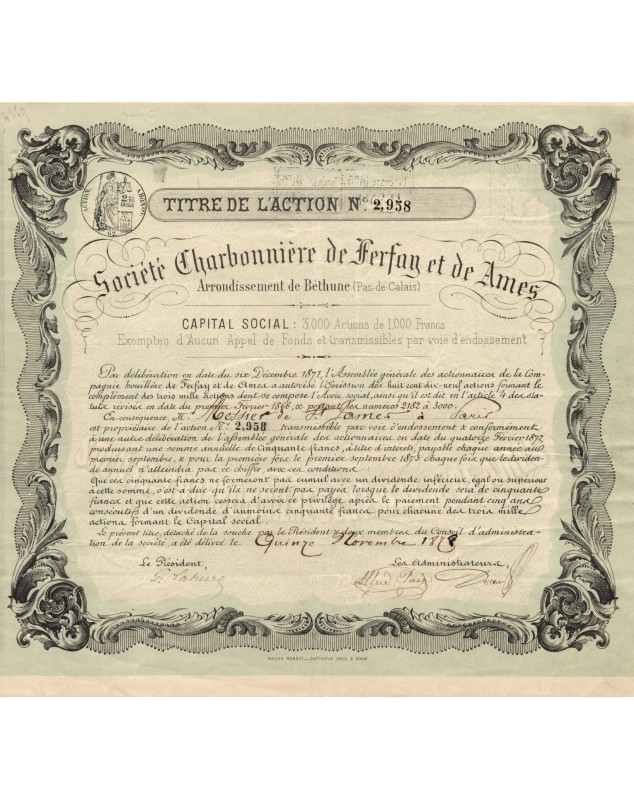 TITRE DE L'ACTION Nº 2,958
Société Charbonnière de Ferfay et de Ames
Arrondissement de Béthune (Pas-de-Calais)
CAPITAL SOCIAL: 3000 Actions de 1,000 Francs
Exemptes d'Aucun Appel de Fonds et transmissibles par voie d'endossement
Par délibération en date du six Décembre 1871, l'Assemblée générale des actionnaires de la Com-
pagnie houillère de Ferfay et de Ames a autorisé l'Emission des huit cent dix-neuf actions formant le
complément des trois mille actions dont se compose l'Avoir social, ainsi qu'il est dit en l'article 4 des sta-
tuts revisés en date du premier Février 1866, & portant les numeros 2182 à 3000.
En conséquence, M. de à Paris
est propriétaire de l'action Nº 2,958 transmissible par voie d'endossement & conformément
à une autre délibération de l'assemblée générale des actionnaires en date du quatorze Février 1872,
produisant une somme annuelle de Cinquante francs, à titre d'intérets, payable chaque année au
premier septembre, & pour la première fois le premier septembre 1873 chaque fois que le dividen-
de annuel n'atteindra pas ce chiffre, avec ces conditions:
Que ces cinquante francs ne formeront pas cumul avec un dividende inférieur, égal ou supérieur
à cette somme, c'est-à-dire qu'ils ne seront pas payés lorsque le dividende sera de cinquante
francs et que cette action cessera d'avoir ce privilège après le paiement pendant cinq ans
consécutifs d'un dividende d'aumoins cinquante francs pour chacune des trois mille
actions formant le Capital social.
Le présent titre, détaché de la souche par le Président & deux membres du Conseil d'administra-
tion de la société, a été délivré le Quinze Novembre 1878
Le Président, Les Administrateurs